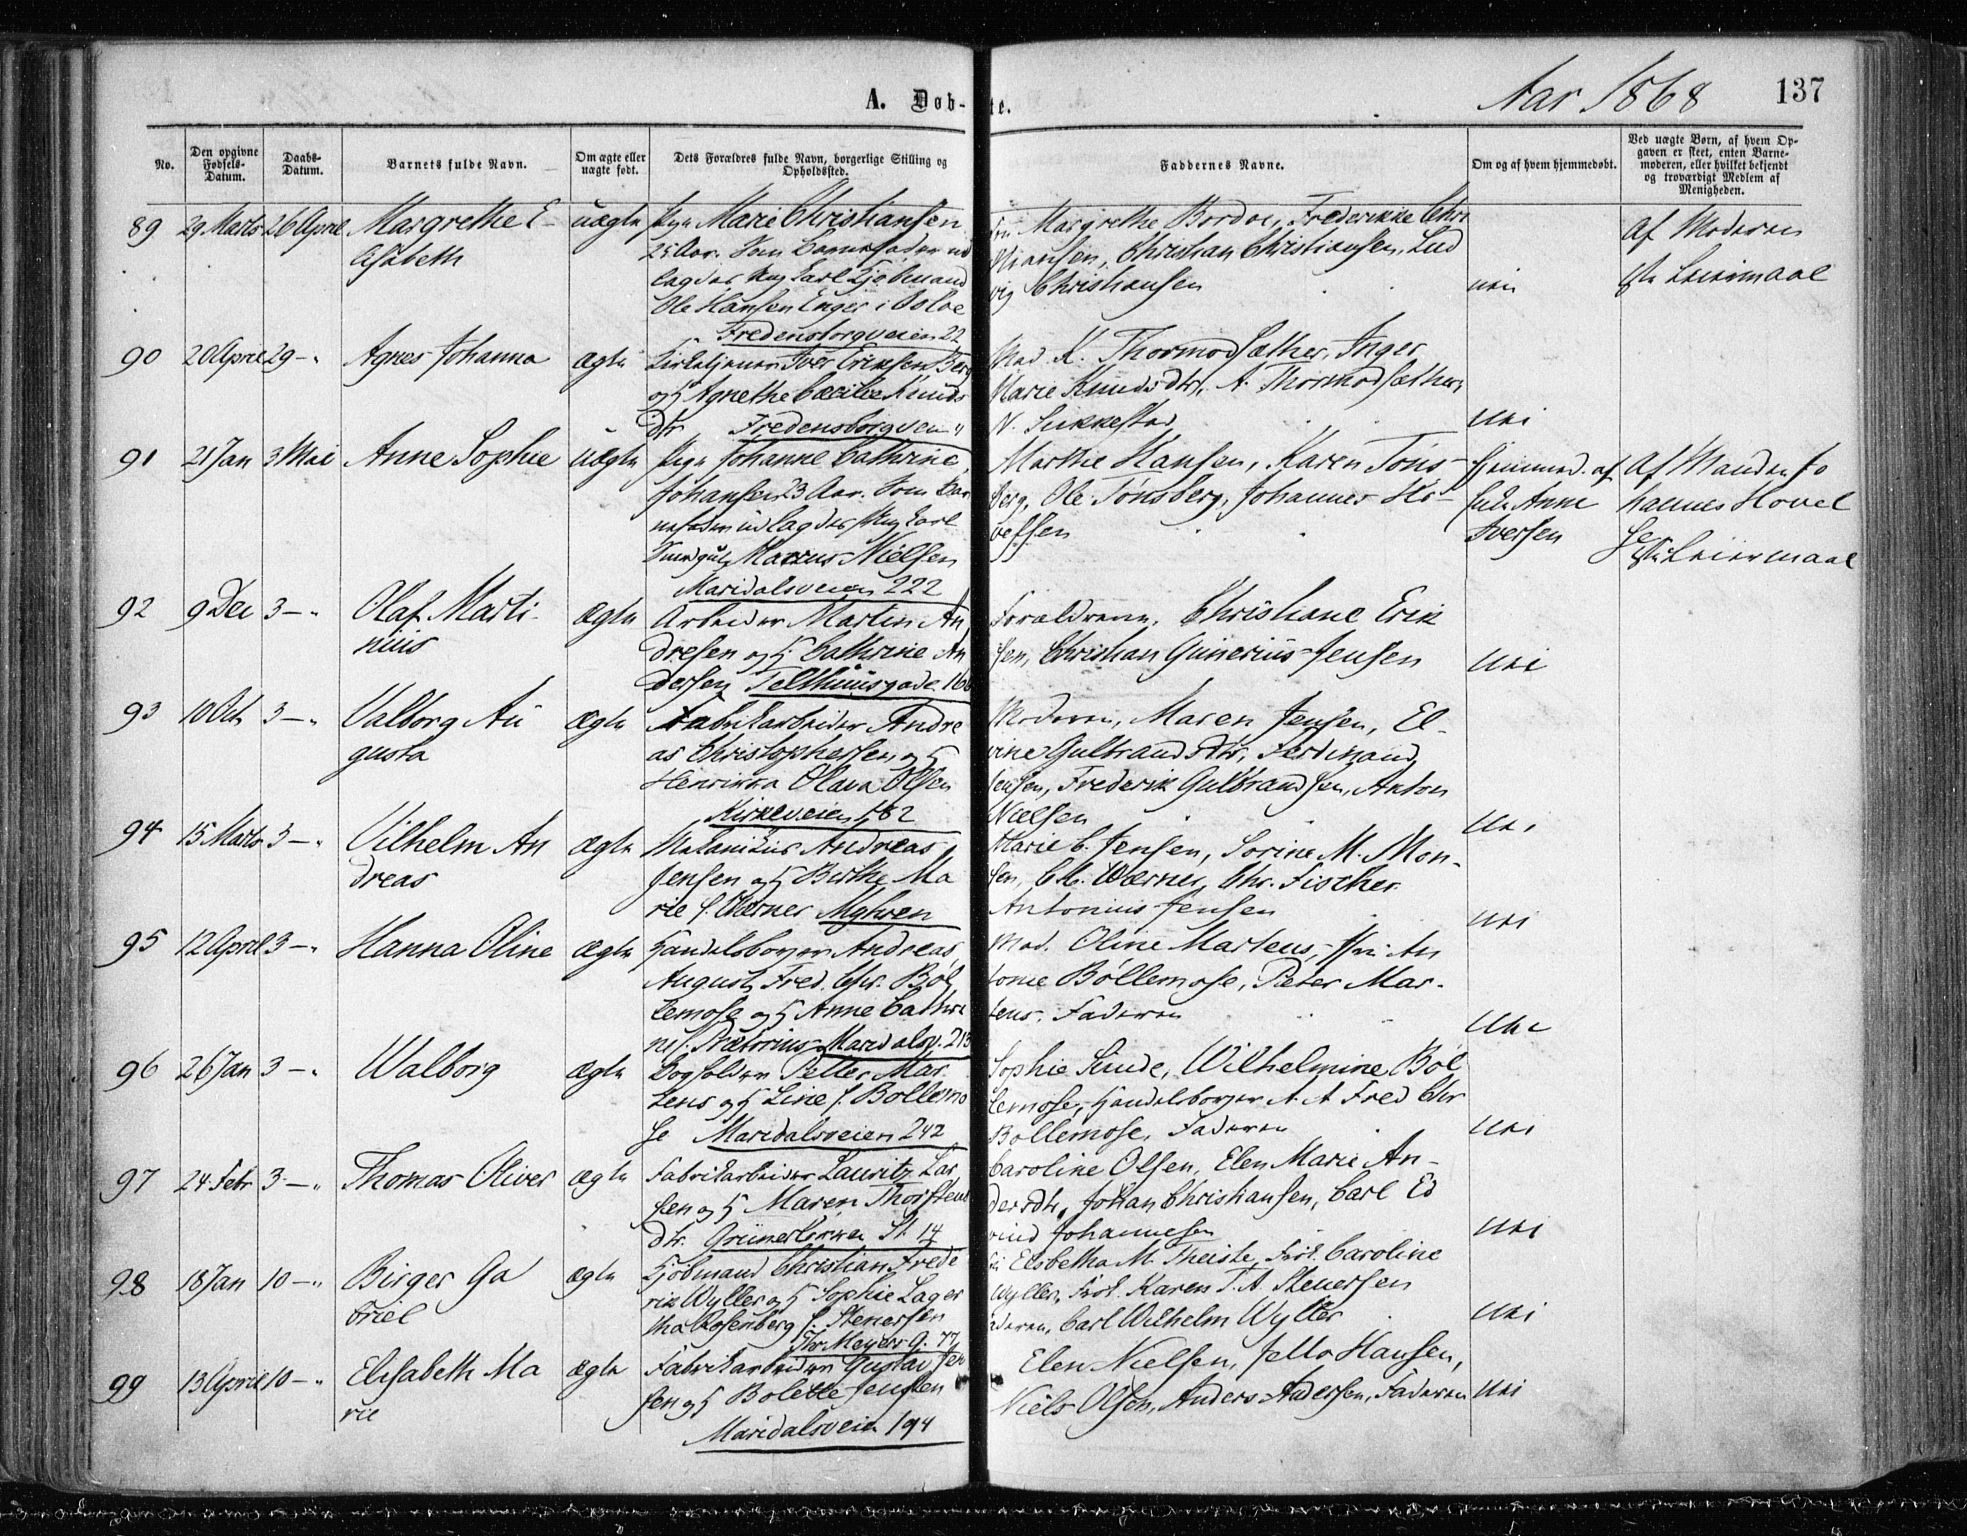 A. Døb-te.
Aar 1868
137
No.
Den opgivne Fødsels-Datum.
Daabs-Datum.
Barnets fulde Navn.
Om ægte eller uægte født.
Dets Forældres fulde Navn, borgerlige Stilling og Opholdssted.
Faddernes Navne.
Om og af hvem hjemmedøbt.
Ved uægte Børn, af hvem Op-
gaven er skeet, enten Barne-
moderen, eller hvilket bekjendt
og troværdigt Medlem af
Menigheden.
89 29 Marts 26 April Margrethe E-
lisabeth
uægte
Pige Marie Christiansen
25 Aar. Som Barnefader ud
lagdes Ung Karl Kjøbmand
Ole Hansen Enger i Osloe
Fredensborgveien 22
Margrethe Bordoe, Frederikke Chri
stiansen, Christian Christiansen, Lud
vig Christiansen
nei
Af Moderen
1ste Leiermaal
90 20 April 29 - " Agnes Johanna ægte
Iver Eriksen Berg
og H Agnethe Cæcilie Knuds
dtr Fredensborgveien "
Mad. K. Thormodsæther, Inger
Marie Knudsdtr, A. Thormodsæther,
N. Sukkestad
nei
91 21 Jan 3 Mai Anne Sophie uægte
Pige Johanne Cathrine
Johansen 23 Aar. Som Bar
nefader udlagdes Ung Karl
Marcus Nielsen
Maridalsveien 222
Marthe Hansen, Karen Töns-
berg, Ole Tönsberg, Johannes Ho-
velsen
Hjemmed. af
Anne
Iversen
Af Manden Jo
hannes Hovel
sen
1ste Leiermaal
92 9 Dec 3 - " Olaf Marti-
nius
ægte
Arbeider Martin An
dresen og H Cathrine An
dersen Telthuusgade 166
Forældrene, Christiane Erik
sen, Christian Gunerius Jensen
nei
93 10 Oct 3 - " Valborg Au
gusta
ægte
Fabrikarbeider Andre
as Christophersen og H
Henrikka Olava Olsen
Kirkeveien 182
Moderen, Maren Jensen, El-
vine Gulbrandsdtr, Ferdinand
Jensen, Frederik Gulbrandsen, Anton
Nielsen
nei
94 15 Marts 3 - " Vilhelm An
dreas
ægte
Mekanikus Andreas
Jensen og H Birthe Ma
rie f. Werner Myhren
Marie C. Jensen, Sorine M. Mon-
sen, C.M. Wærner, Chr. Fischer
Antonius Jensen
nei
95 12 April 3 - " Hanna Oline ægte
Handelsborger Andreas
August Fred. Chr. Böl
lemose og H Anne Cathri
ne f. Prætorius Maridalsv. 213
Mad. Oline Martens, Fru An
tonie Böllemose, Peter Mar-
tens, Faderen
nei
96 26 Jan 3 - " Walborg ægte
Bogholder Petter Mar
tens og H Line f. Bøllemo
se Maridalsveien 242
Sophie Sinde, Wilhelmine Böl
lemose, Handelsborger A. A Fred Chr
Bøllemose, Faderen
nei
97 24 Febr 3 - " Thomas Oliver ægte
Fabrikarbeider Lauritz Lar
sen og H Maren Thorstens
dtr. Grünerlökken St. 14
Caroline Olsen, Elen Marie An-
dersdtr, Johan Christiansen, Carl Ed
vind Johannesen
nei
98 18 Jan 10 - " Birger Ga
briel
ægte
Kjöbmand Christian Frede
rik Wyller og H Sophie Lager
tha Rosenberg f. Stenersen
Thv. Meyers G. 77
Elsbetha M. Theiste, Frk. Caroline
Wyller, Frk. Karen T. A. Stenersen
Faderen, Carl Wilhelm Wyller
nei
99 13 April 10 - " Elisabeth Ma
rie
ægte
Fabrikarbeider Gustav Jen
sen og H Bolette Jensen
Maridalsveien 194
Elen Nielsen, Jello Hansen,
Niels Olsen, Anders Andersen, Faderen
nei